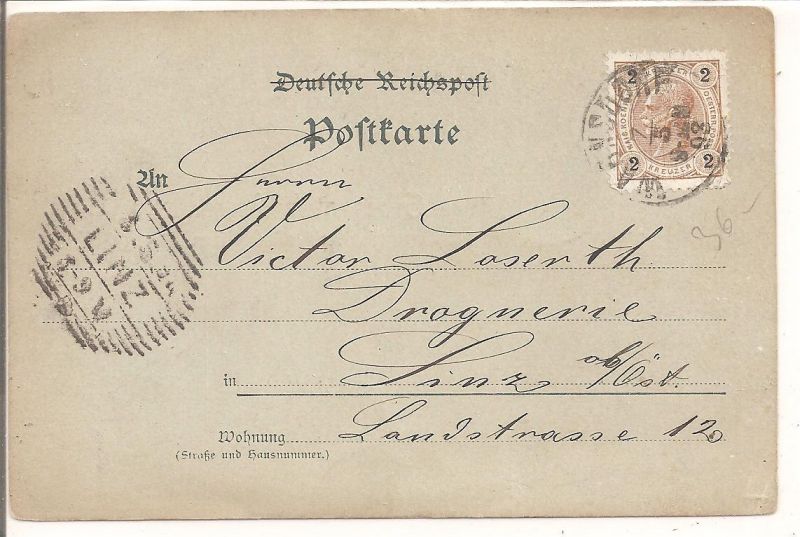 Deutsche Reichspost
Postkarte
2 2
2 KREUZER 2
An Herrn
Victor Laserth
Drognerie
in Linz ob/Öst.
Wohnung Landstrasse 12
(Straße und Hausnummer.)
LINZ
6-9 V
36-